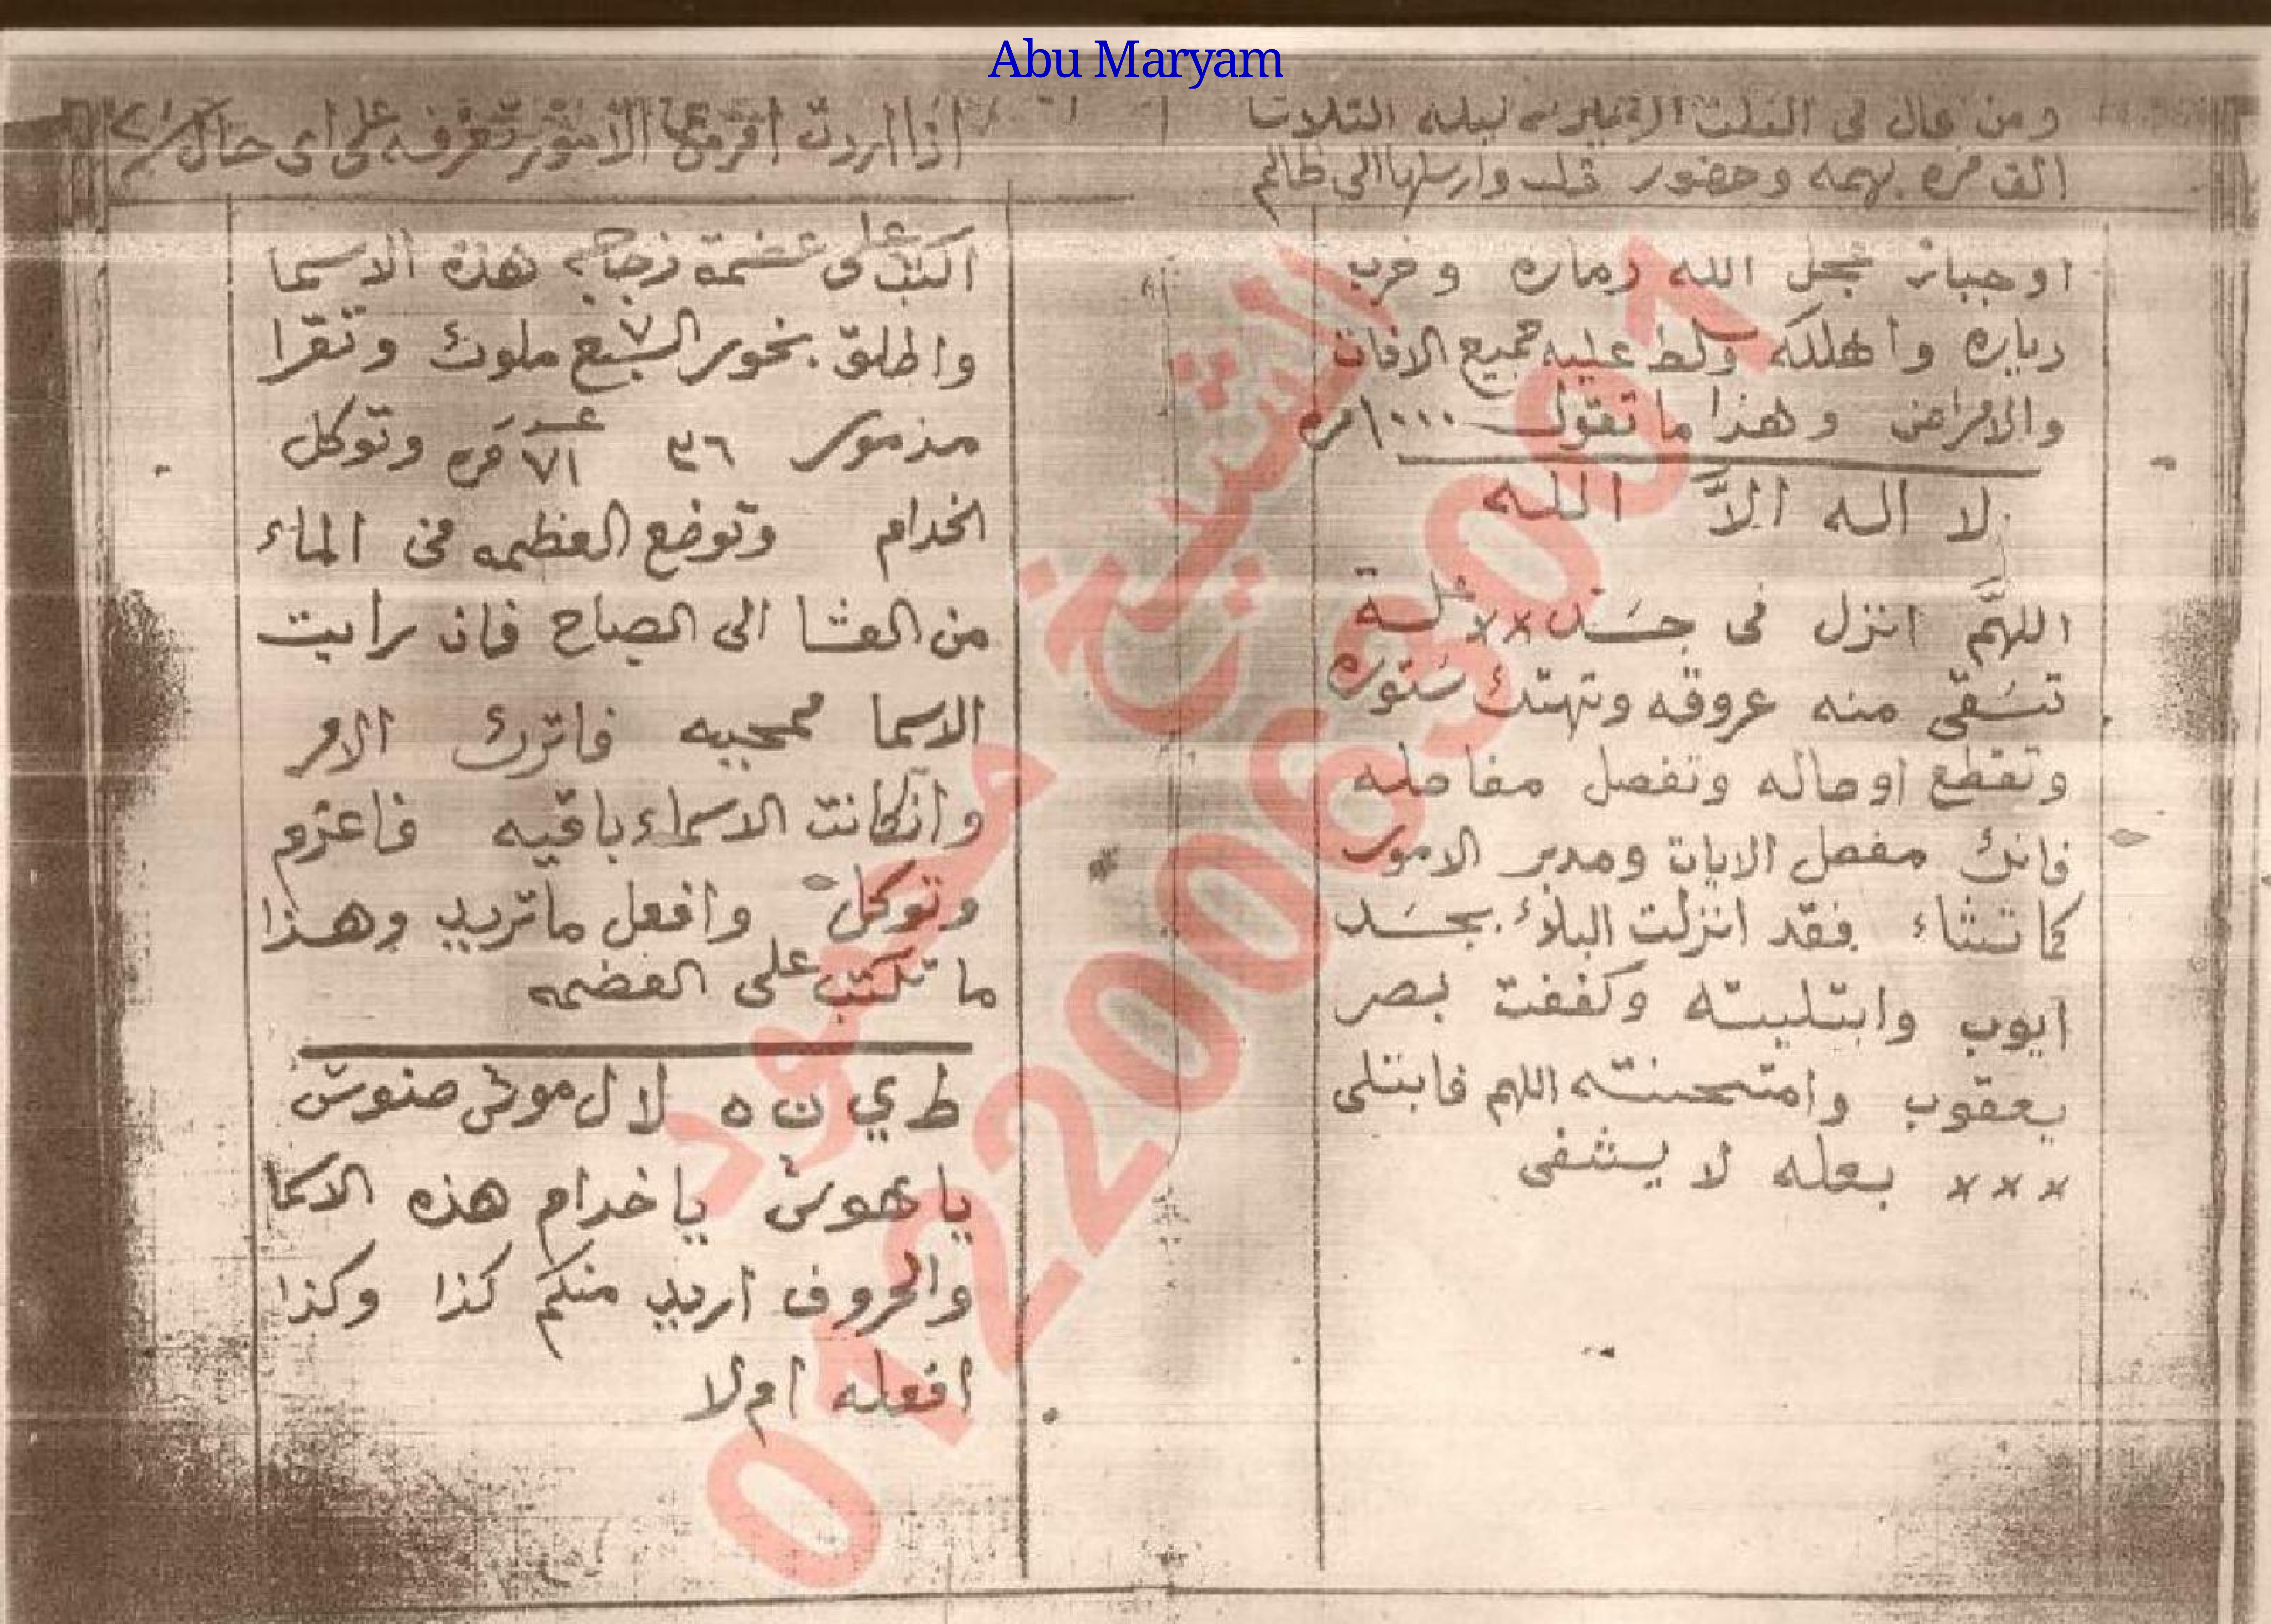 Abu Maryam
ومن قال فى الثلث الاخير من ليله الثلاث
الف مره بهمه وحضور قلب وارسلها الى ظالم
او جبار عجل الله دماره وخرب
دياره واهلكه وسلط عليه جميع الافات
والامراض وهذا ما تقول ١٠٠٠ مره
لا اله الاَّ الله
اللهمَّ انزل فى جسَد ×× علـة
تسَقى منه عروقه وتهتك سَتوره
وتقطع اوصاله وتفصل مفاصله
فانك مفصل الايات ومدبر الامور
كما تشاء فقد انزلت البلاء بجسَد
ايوب وابتليته وكففت بصر
يعقوب وامتحنته اللهم فابتلى
××× بعله لا يشفى
اذا اردت امر من الامور تعرفه على اى حال
اكتب على عضمة زجاجه هذه الاسما
واطلق بخور السبع ٧ ملوك وتقرا
مزمور ٣٦ ٧١ مَره وتوكل
الخدام وتوضع العظمه فى الماء
من العشا الى الصباح فان رايت
الاسما ممحيه فاترك الامر
وانكانت الاسماء باقيه فاعزم
وتوكل وافعل ماتريد وهذا
ما تكتب على العضمه
ط ي ن ه لا ل موش صنوش
يا هوش يا خدام هذه الاسما
والحروف اريد منكم كذا وكذا
افعله ام لا
الشيخ محمود
01220063007